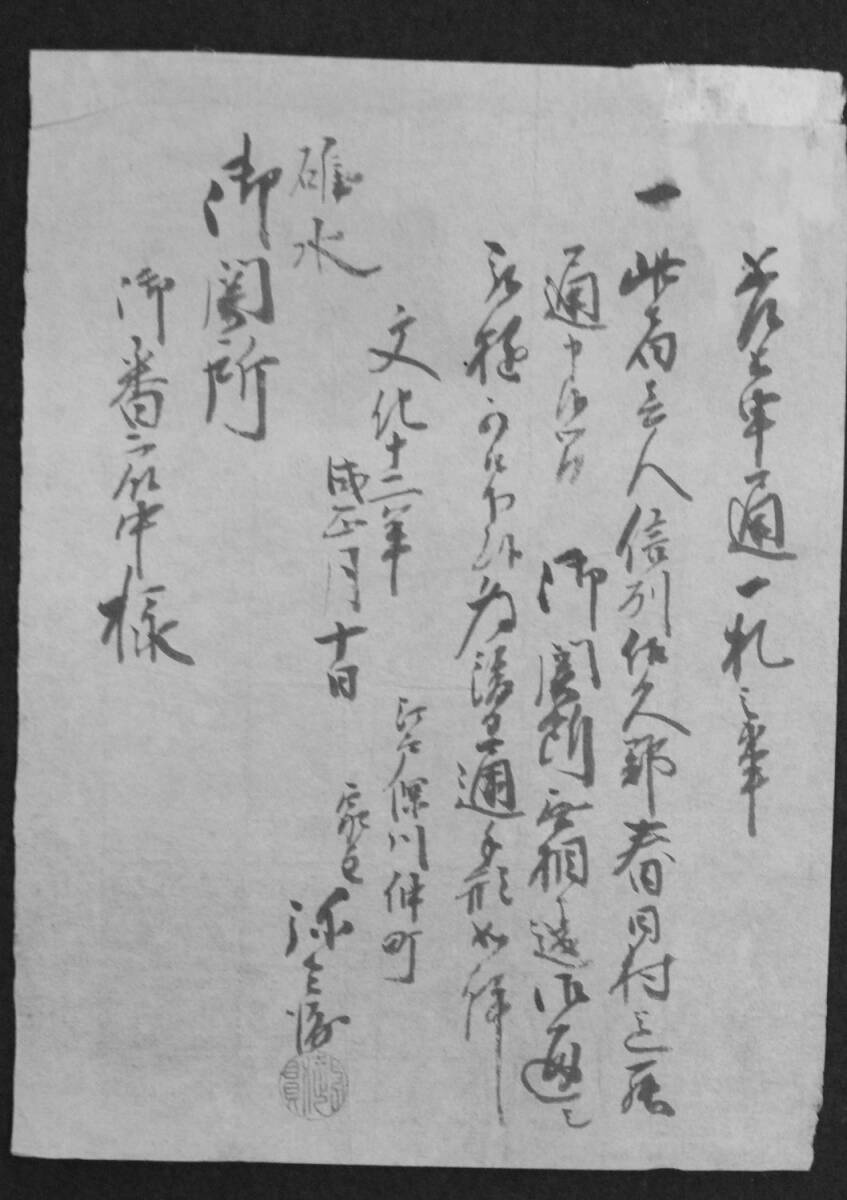 差上申通一札之事
一此者壱人信州佐久郡春日村迄罷
通申候間御関所無相違御通し
被遊可被下候為後日通手形如件
文化十一年
戌正月十日
江戸深川仲町
家主
弥兵衛
碓氷
御関所
御番所中様